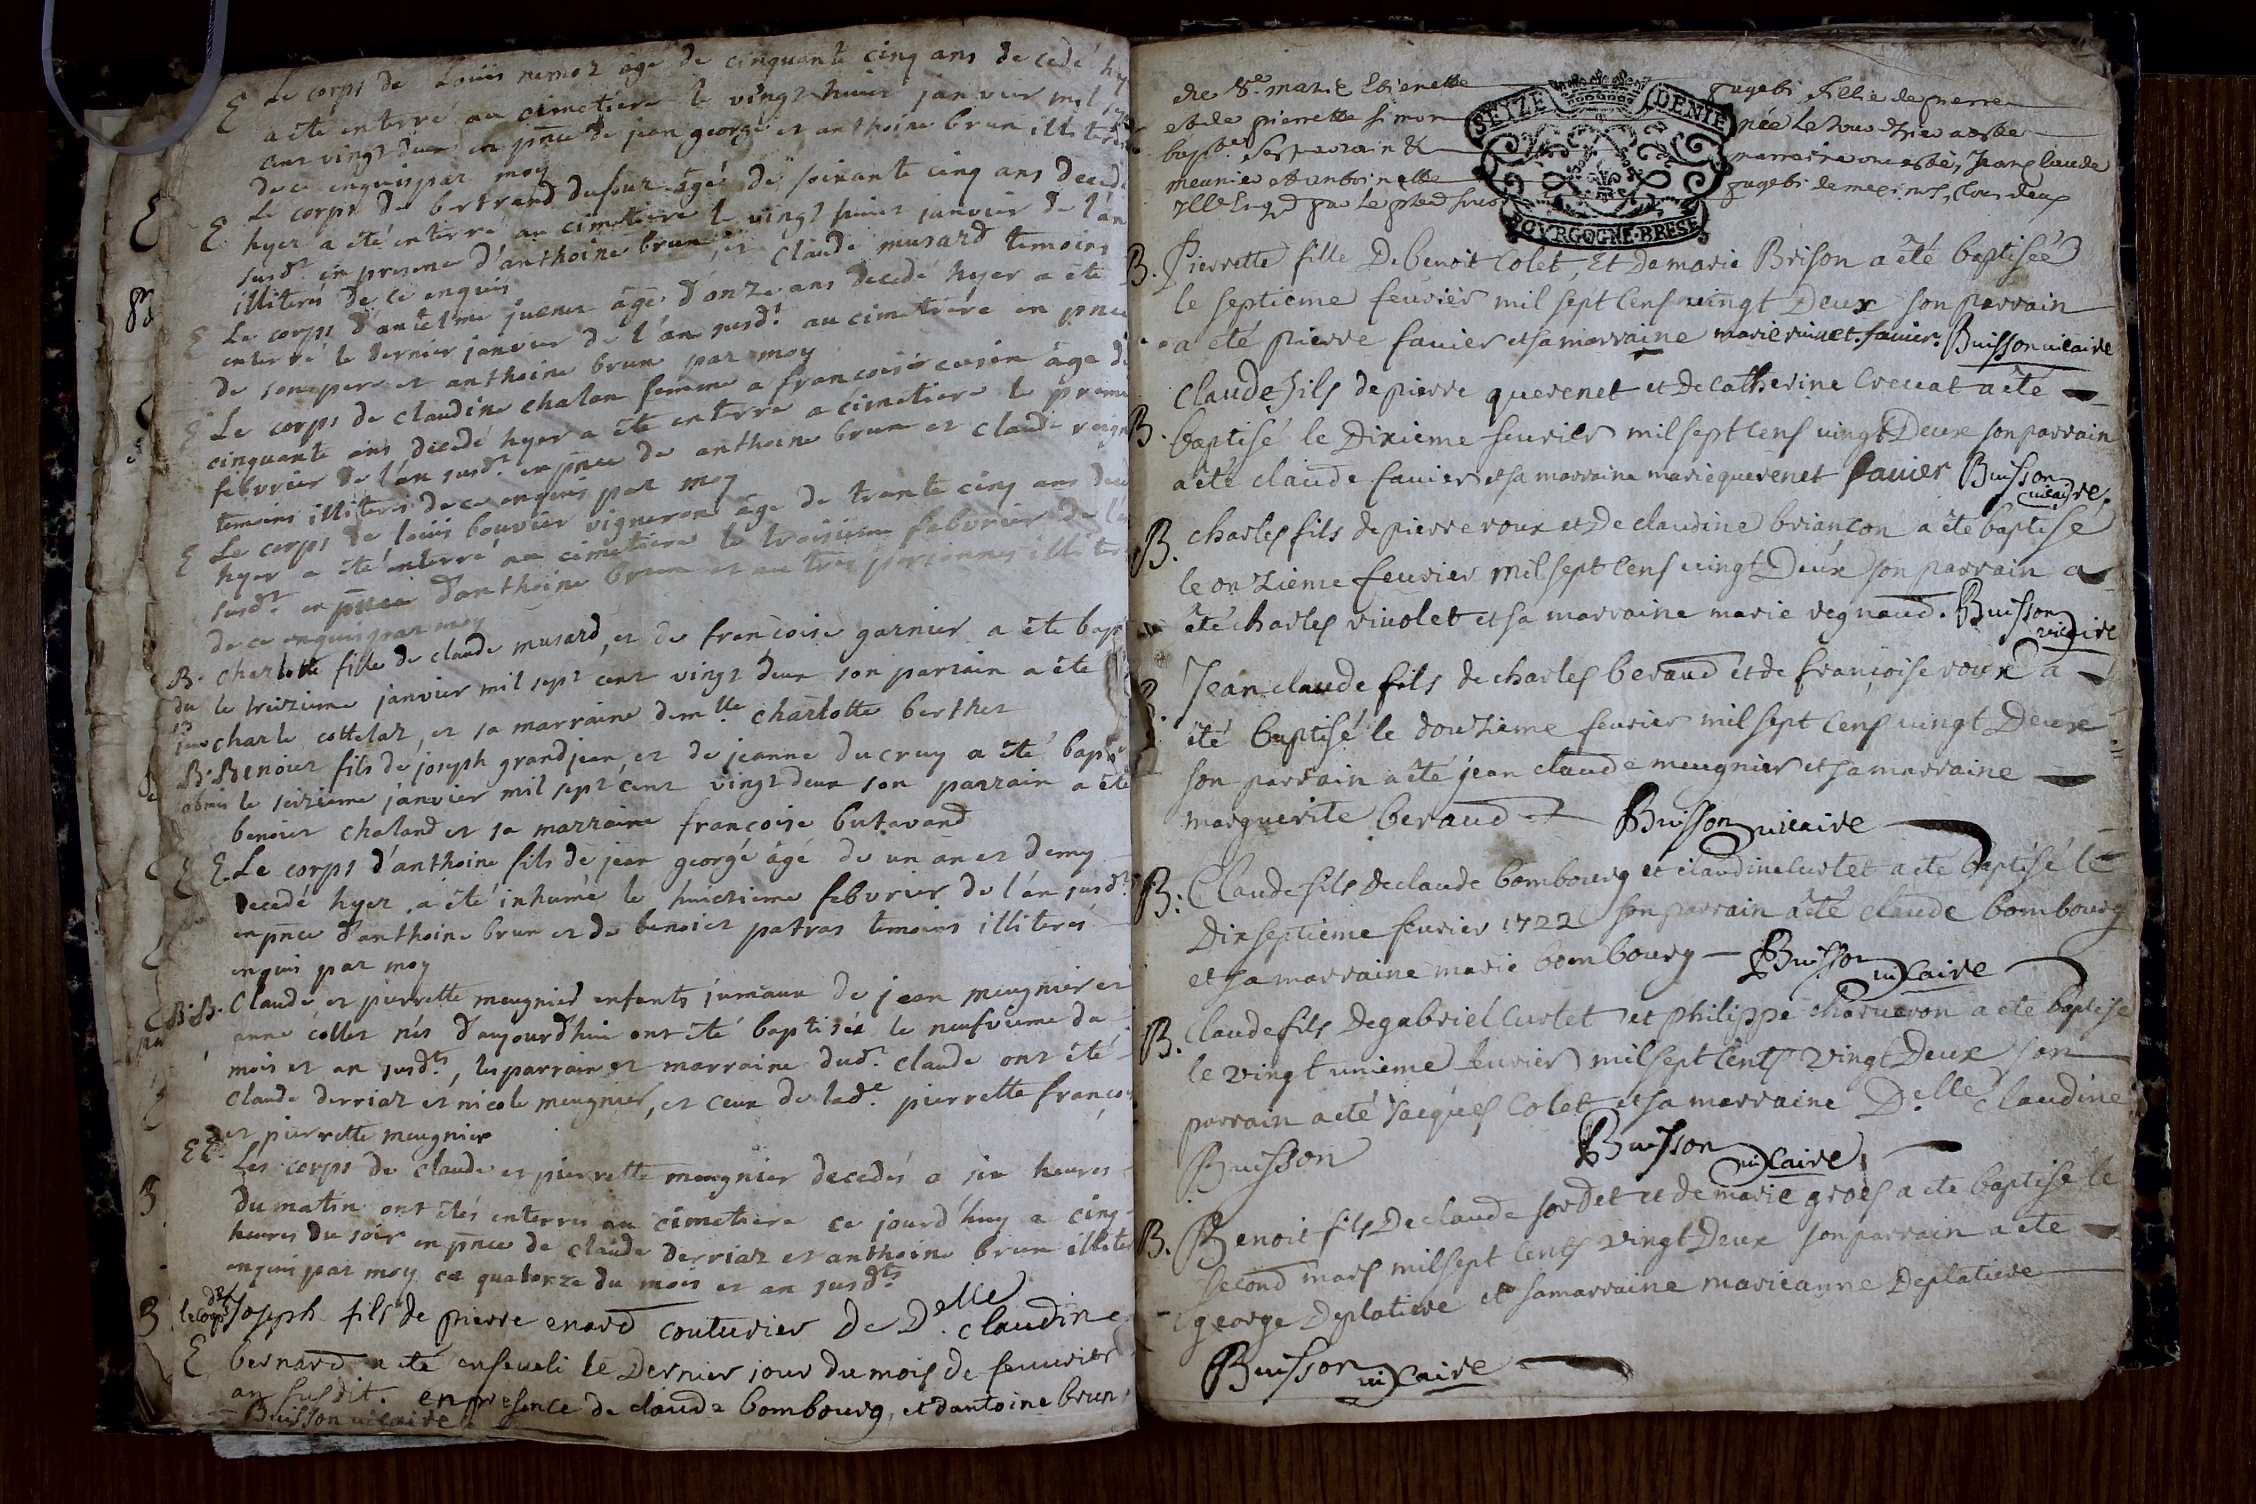 E Le corps de Louis nemoz âgé de cinquante cinq ans decedé hy
a été enterré au cimetiere le vingt huit janvier mil sept
cent vingt deux en pnce de jean george et anthoine brun illiteres
de ce enquis par moy
E Le corps de bertrand dufour âgé de soixante cinq ans decedé
hyer a été enterré au cimetiere le vingt huict janvier de l'an
susdt en presence d'anthoine brun, et claude musard temoins
illiterés de ce enquis
E Le corps d'antelme juenet âgé d'onze ans decedé hyer a été
enterré le dernier janvier de l'an susdt au cimetiere en pnce
de son pere et anthoine brun par moy
E Le corps de claudine chalan femme a francois cusin âgé de
cinquante ans, decedé hyer a été enterré a cimetiere le premier
febvrier de l'an susdt en pnce de anthoine brun et claude
temoins illiterés de ce enquis par moy
E Le corps de louis bouvier vigneron âgé de trente cinq ans dece
hyer a été enterré au cimetiere le troisieme febvrier de l'an
susdt en pnce d'anthoine brun et autres personnes illitere
de ce enquis par moy
B. charlotte fille de claude musard, et de francoise garnier a été bapt
du le treizieme janvier mil sept cent vingt deux son parrain a été
charle cottelaz, et sa marraine demlle charlotte berthet
B. Benoict fils de joseph grandjean, et de jeanne ducruy a été bapt
obmis le seizieme janvier mil sept cent vingt deux son parrain a été
benoict chaland et sa marraine francoise butavand
E E. Le corps d'anthoine fils de jean georgé âgé de un an et demy
decedé hyer a été inhumé le huictieme febvrier de l'an susdt
en pnce d'anthoine brun et de benoict patras temoins illiteres
enquis par moy
B. B. Claude et pierrette meugnier enfants jumaux de jean meugnier et
anne collet nés d'aujourd'hui ont été baptisée le neufvieme du
mois et an susdts, les parrain et marraine dudt claude ont été
claude derriaz et nicole meugnier, et ceux de lade pierrette françois
et pierrette meugnier
E E. Les corps de claude et pierrette meugnier decedés a six heures
du matin ont étés enterrés au cimetiere ce jourd'huy a cinq
heures du soir en pnce de claude derriaz et anthoine brun illiter
enquis par moy ce quatorze du mois et an susdts
le corps dt Joseph fils de pierre enard couturier de Delle claudine
E bernard a été enseueli le Dernier jour du mois de feuurier
an susdit. en presence de claude bombourg, et dantoine brun
Buisson uicaire
SEIZE DENIE
BOVRGOGNE·BRESSE
marie Etienette gugebi fille de pierre
et de pierrette Simon née le jour
bapt Son parain &
meunie et antoinette gugebi
B. Pierrette fille De benoit Colet, Et De marie Brison a été baptisée
le septieme feurier mil sept cens vingt Deux son parrain
a été pierre fauier et sa marraine marie fauier. Buisson uicaire
Claude fils de pierre querenet et De Catherine Creuat a été
B. baptisé le Dixieme feurier mil sept cens vingt Deux son parrain
a été claude fauier et sa marraine marie querenet fauier Buisson
uicaire,
B. charles fils de pierre roux et De claudine briançon a été baptisé
le onzieme feurier mil sept cens vingt Deux son parrain a
été charles riuolet et sa marraine marie regnaud. Buisson
uicaire
B. Jean claude fils de charles beraud et de françoise roux a
été baptisé le douzieme feurier mil sept cens vingt Deux
son parrain a été jean claude meugnier et sa marraine
marguerite beraud Buisson uicaire
B. Claude fils De claude bombourg et claudine Curtet a été baptisé le
Dix septieme feurier 1722 son parrain a été claude bombourg
et sa marraine marie bombourg — Buisson
uicaire
B. Claude fils De gabriel Curtet et philippe charueron a été baptisé
le vingt unieme feurier mil sept cents vingt Deux son
parrain a été Jacques Colet et sa marraine Delle Claudine
Buisson Buisson
uicaire
B. Benoit fils De claude sordet et de marie gros a été baptisé le
second mars mil sept cents vingt Deux son parrain a été
george Deplatiere et sa marraine marieanne Deplatiere
Buisson uicaire